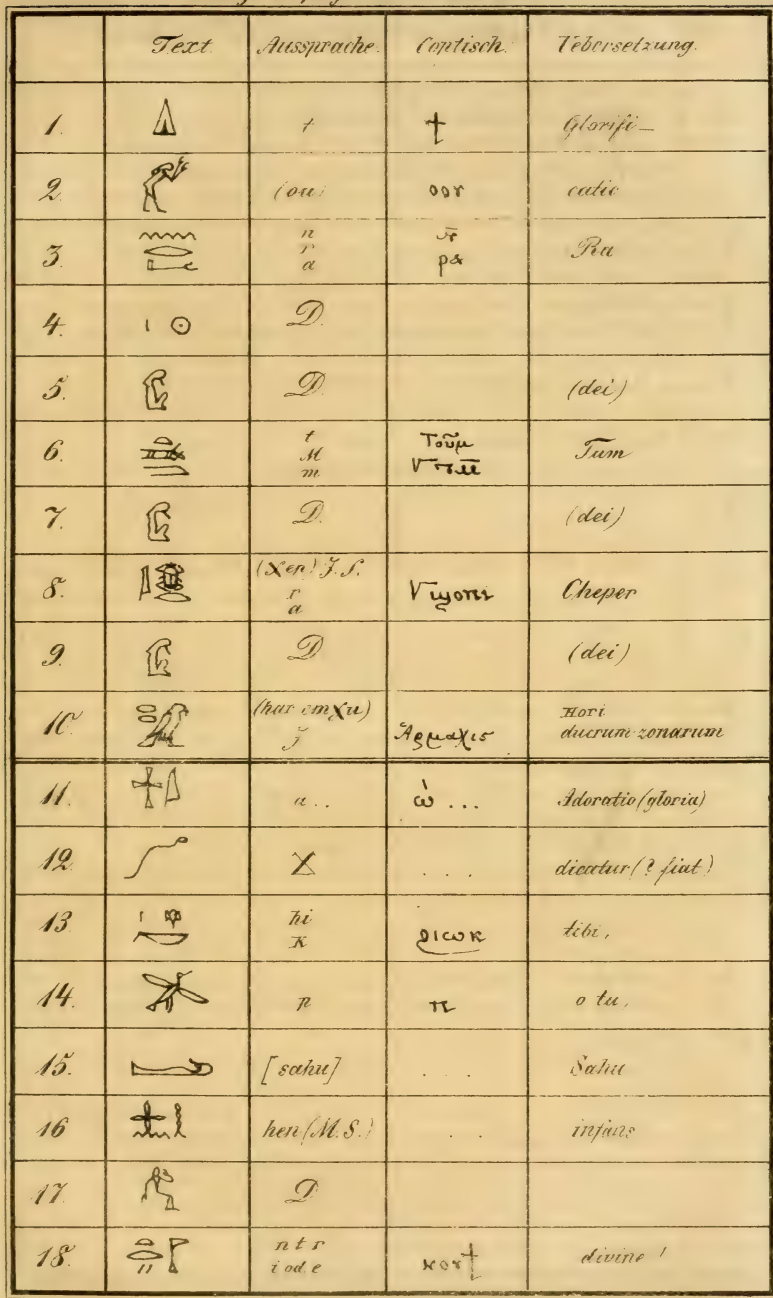 Text. Aussprache. Coptisch. Uebersetzung.
1. t ϯ Glorifi-
2. (ou) ⲟⲟⲩ catio
3. n Ra
r
a ⲣⲁ
4. D.
5. D. (dei)
6. t Τοῦμ Tum
M
m
7. D. (dei)
8. (Xep) J. S. Cheper
r
a
9. D (dei)
10. (har em χu) Ἁρμαχις Hori
J duorum zonarum
11. a.. ὠ ... Adoratio (gloria)
12. X . . . dicatur (? fiat)
13. hi ϩⲓⲱⲕ tibi,
K
14. p ⲡ o tu,
15. [sahu] . . . Sahu
16 hen (M. S.) . . infans
17. D
18. n t r ⲛⲟⲩϯ divine!
i od. e